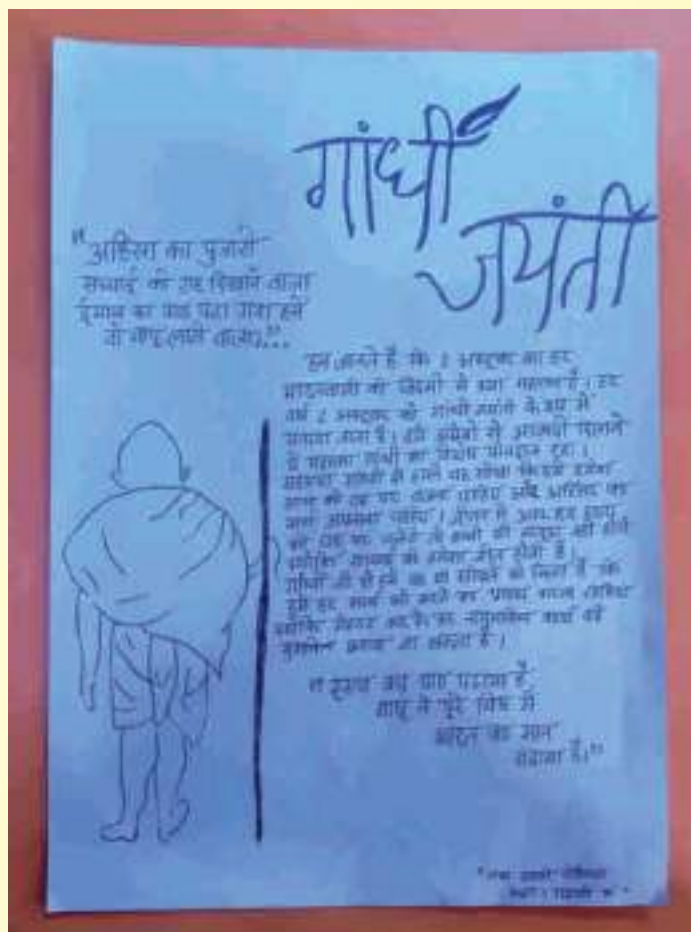 गांधी
जयंती
"अहिंसा का पुजारी
सच्चाई की राह दिखाने वाला
ईमान का पाठ पढ़ा गया हमें
वो बापू लाठी वाला।"...
हम जानते हैं कि 2 अक्टूबर का हर
भारतवासी की जिंदगी में क्या महत्व है। हर
वर्ष 2 अक्टूबर को गांधी जयंती के रूप में
मनाया जाता है। हमें अंग्रेजों से आजादी दिलाने
में महात्मा गांधी का विशेष योगदान रहा।
महात्मा गांधी से हमने यह सीखा कि हमें हमेशा
सत्य की राह पर चलना चाहिए और अहिंसा का
मार्ग अपनाना चाहिए। जीवन में अगर हम
की राह पर चलेंगे तो कभी भी नहीं होंगे
क्योंकि सच्चाई की हमेशा जीत होती है।
गाँधी जी से हमें यह भी सीखने को मिला है कि
हमें हर कार्य को करने का प्रयास करना चाहिए
क्योंकि मेहनत कर के हर नामुमकिन कार्य को
मुमकिन बनाया जा सकता है।
पाठ पढ़ाया है
बापू ने पूरे विश्व में
भारत का मान
बढ़ाया है।"